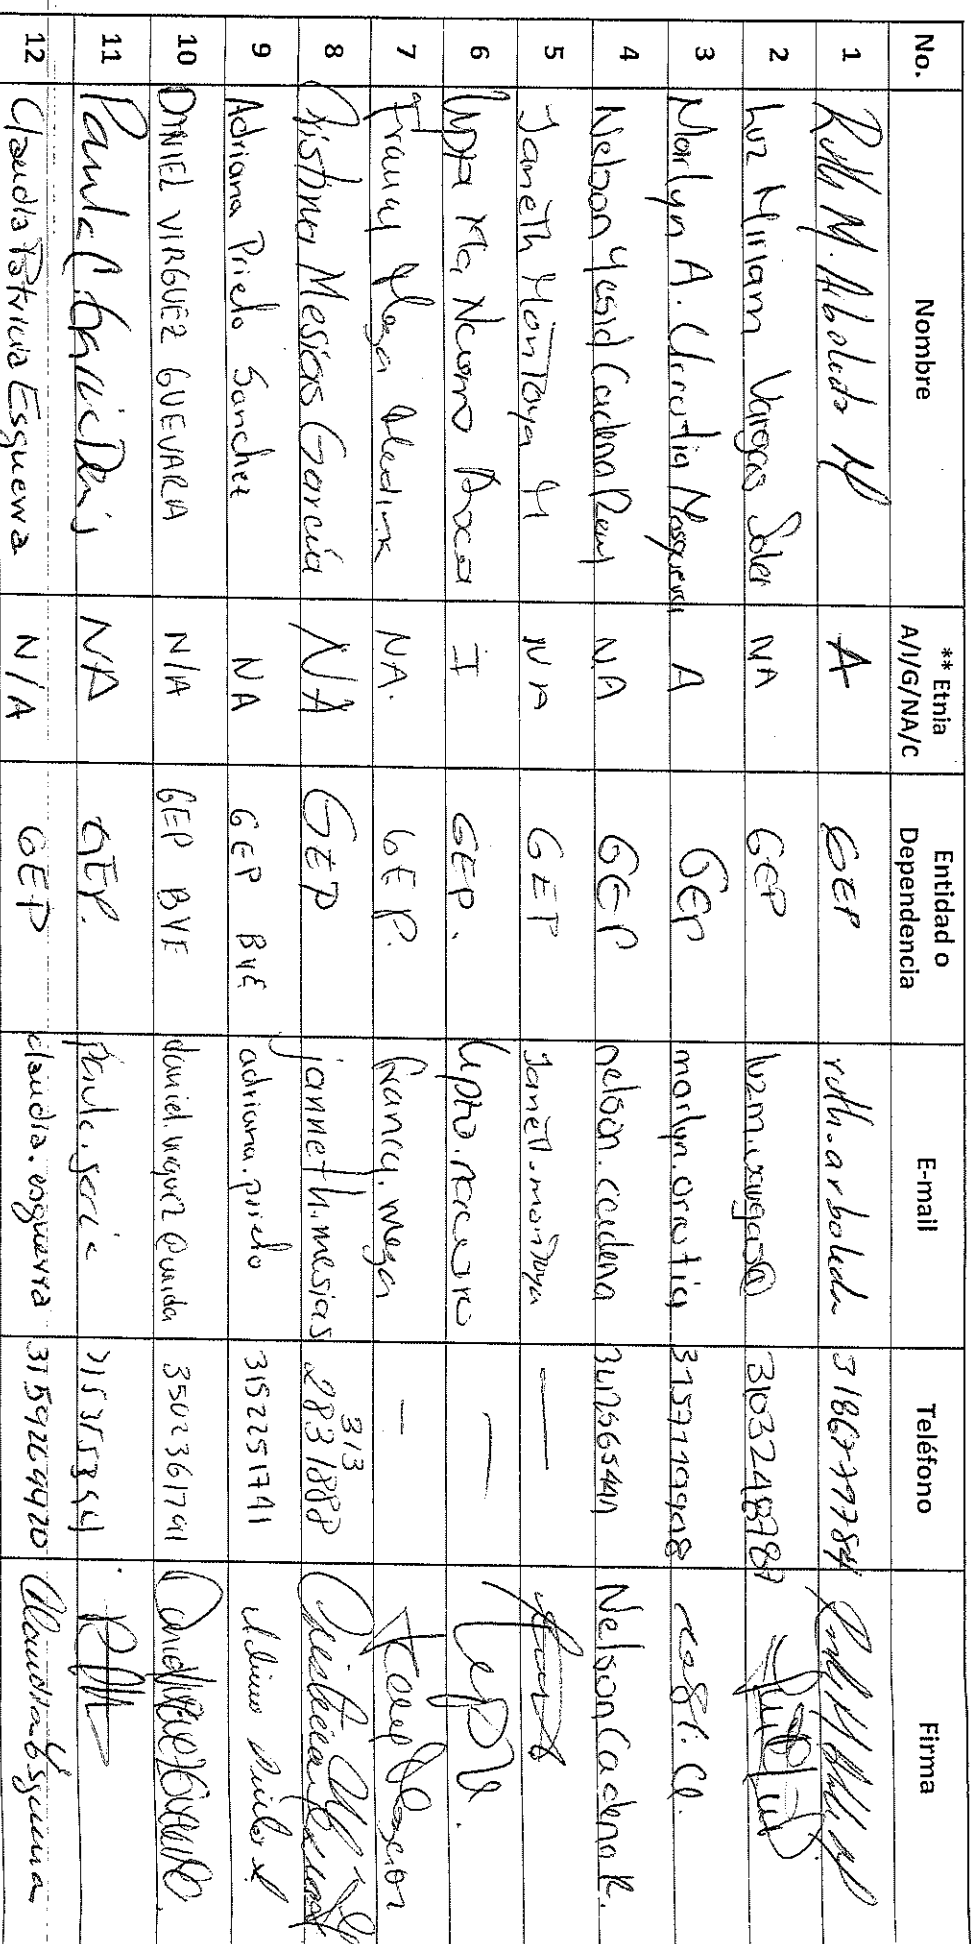 No. Nombre ** Etnia A/I/G/NA/C Entidad o Dependencia E-mail Teléfono Firma
1 Ruth M. Arboleda M GEP ruth.arboleda
2 Luz Miriam Vargas Soler NA GEP luzm.vargas@ 3103248787
3 Marilyn A. Urrutia Mosquera A GEP marilyn.orrutia
4 Nelson Yesid Cadena Rey NA GEP nelson.cadena Nelson Cadena R.
5 Janeth Montoya M NA GEP Janeth.montoya —
6 I GEP. —
7 Francy Meza Medina NA. GEP. francy.meza —
8 Cristina Mesias Garcia NA GEP janneth.mesias 313 2831888
9 Adriana Prieto Sanchez NA GEP BVE adriana.prieto 3152251741
10 DANIEL VIRGUEZ GUEVARA N/A GEP BVE 3502361791
11 Paula C. NA GEP. Paula.garcia
12 Claudia Patricia Esguerra N/A GEP claudia.esguerra 3159264920 Claudia Esguerra